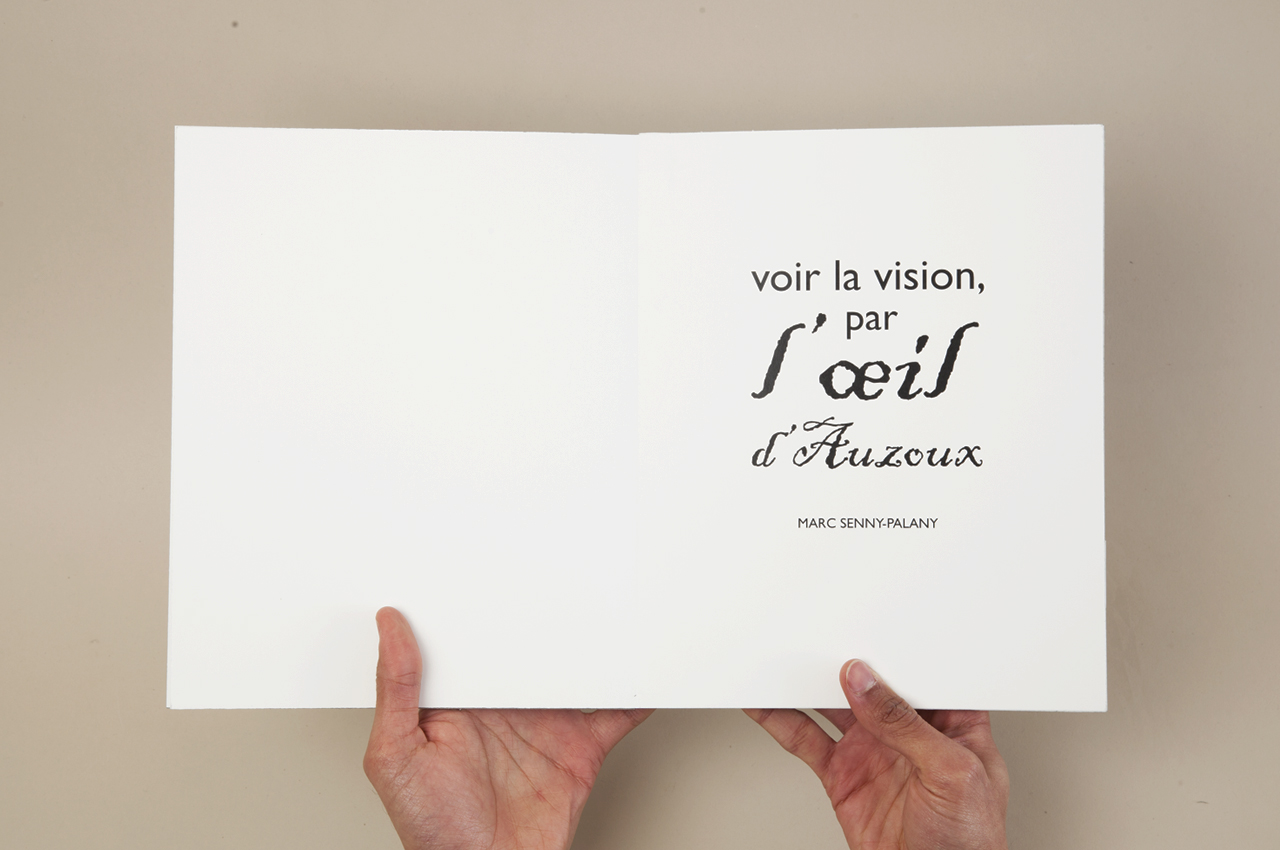 voir la vision,
par
l'œil
d'Auzoux
MARC SENNY-PALANY